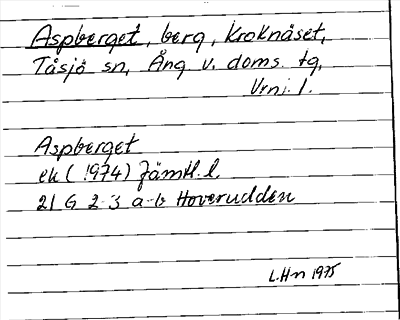 Aspberget, berg, Kroknäset,
Tåsjö sn, Ång v. doms. tg,
Vrnj. l.
Aspberget
ek (1974) Jämtl. l.
21 G 2-3 a-b Hoverudden
L.Hn 1975